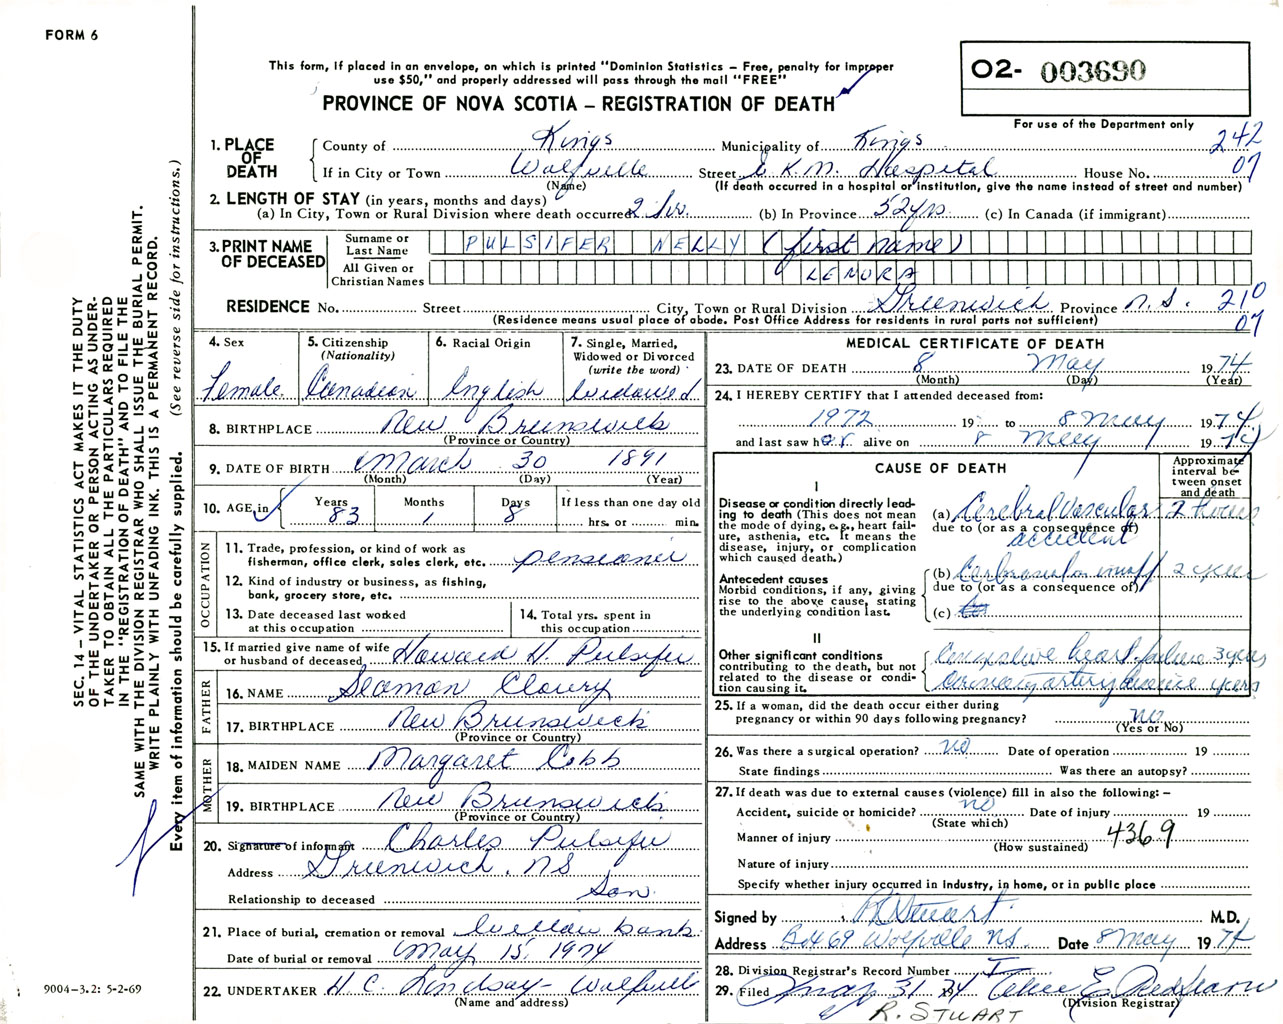 FORM 6
This form, if placed in an envelope, on which is printed "Dominion Statistics – Free, penalty for improper
use $50," and properly addressed will pass through the mail "FREE"
PROVINCE OF NOVA SCOTIA – REGISTRATION OF DEATH
02- 003690
For use of the Department only
1. PLACE OF DEATH
County of Kings Municipality of Kings 242
If in City or Town Wolfville Street E K.M. Hospital House No. 07
(Name) (If death occurred in a hospital or institution, give the name instead of street and number)
2. LENGTH OF STAY (in years, months and days)
(a) In City, Town or Rural Division where death occurred 2 hrs. (b) In Province 52 yrs. (c) In Canada (if immigrant)
3. PRINT NAME OF DECEASED
Surname or Last Name PULSIFER NELLY (first name)
All Given or Christian Names LENORA
RESIDENCE No. Street City, Town or Rural Division Greenwich Province N.S. 210
(Residence means usual place of abode. Post Office Address for residents in rural parts not sufficient) 07
4. Sex Female
5. Citizenship (Nationality) Canadian
6. Racial Origin English
7. Single, Married, Widowed or Divorced (write the word) Widowed
8. BIRTHPLACE New Brunswick
(Province or Country)
9. DATE OF BIRTH March 30 1891
(Month) (Day) (Year)
10. AGE in Years 83 Months 1 Days 8 If less than one day old hrs. or min.
OCCUPATION
11. Trade, profession, or kind of work as
fisherman, office clerk, sales clerk, etc. pensioner
12. Kind of industry or business, as fishing,
bank, grocery store, etc.
13. Date deceased last worked
at this occupation
14. Total yrs. spent in
this occupation
15. If married give name of wife
or husband of deceased Howard H. Pulsifer
FATHER
16. NAME Seaman Cloury
17. BIRTHPLACE New Brunswick
(Province or Country)
MOTHER
18. MAIDEN NAME Margaret Cobb
19. BIRTHPLACE New Brunswick
(Province or Country)
20. Signature of informant Charles Pulsifer
Address Greenwich, NS
Relationship to deceased Son
21. Place of burial, cremation or removal Willow bank
Date of burial or removal May 15, 1974
22. UNDERTAKER H C. Lindsay - Wolfville
(Name and address)
MEDICAL CERTIFICATE OF DEATH
23. DATE OF DEATH 8 May 1974
(Month) (Day) (Year)
24. I HEREBY CERTIFY that I attended deceased from:
1972 19 to 8 May 1974
and last saw her alive on 8 May 1974
CAUSE OF DEATH
Approximate interval between onset and death
I
Disease or condition directly leading
to death (This does not mean
the mode of dying, e.g., heart failure,
asthenia, etc. It means the
disease, injury, or complication
which caused death.)
(a) Cerebral Vascular 2 hours
due to (or as a consequence of)
accident
Antecedent causes
Morbid conditions, if any, giving
rise to the above cause, stating
the underlying condition last.
(b) 2 years
due to (or as a consequence of)
(c)
II
Other significant conditions
contributing to the death, but not
related to the disease or condition
causing it.
Congestive heart failure 3 years
Coronary artery disease years
25. If a woman, did the death occur either during
pregnancy or within 90 days following pregnancy? no
(Yes or No)
26. Was there a surgical operation? no Date of operation 19
State findings Was there an autopsy?
27. If death was due to external causes (violence) fill in also the following: –
Accident, suicide or homicide? no Date of injury 19
(State which)
Manner of injury 4369
(How sustained)
Nature of injury
Specify whether injury occurred in industry, in home, or in public place
Signed by R Stuart M.D.
Address Bx 69 Wolfville NS. Date 8 May 1974
28. Division Registrar's Record Number
29. Filed May 31 74
(Division Registrar)
R. STUART
SEC. 14 – VITAL STATISTICS ACT MAKES IT THE DUTY
OF THE UNDERTAKER OR PERSON ACTING AS UNDER-
TAKER TO OBTAIN ALL THE PARTICULARS REQUIRED
IN THE "REGISTRATION OF DEATH" AND TO FILE THE
SAME WITH THE DIVISION REGISTRAR WHO SHALL ISSUE THE BURIAL PERMIT.
WRITE PLAINLY WITH UNFADING INK. THIS IS A PERMANENT RECORD.
Every item of information should be carefully supplied. (See reverse side for instructions.)
9004-3.2: 5-2-69